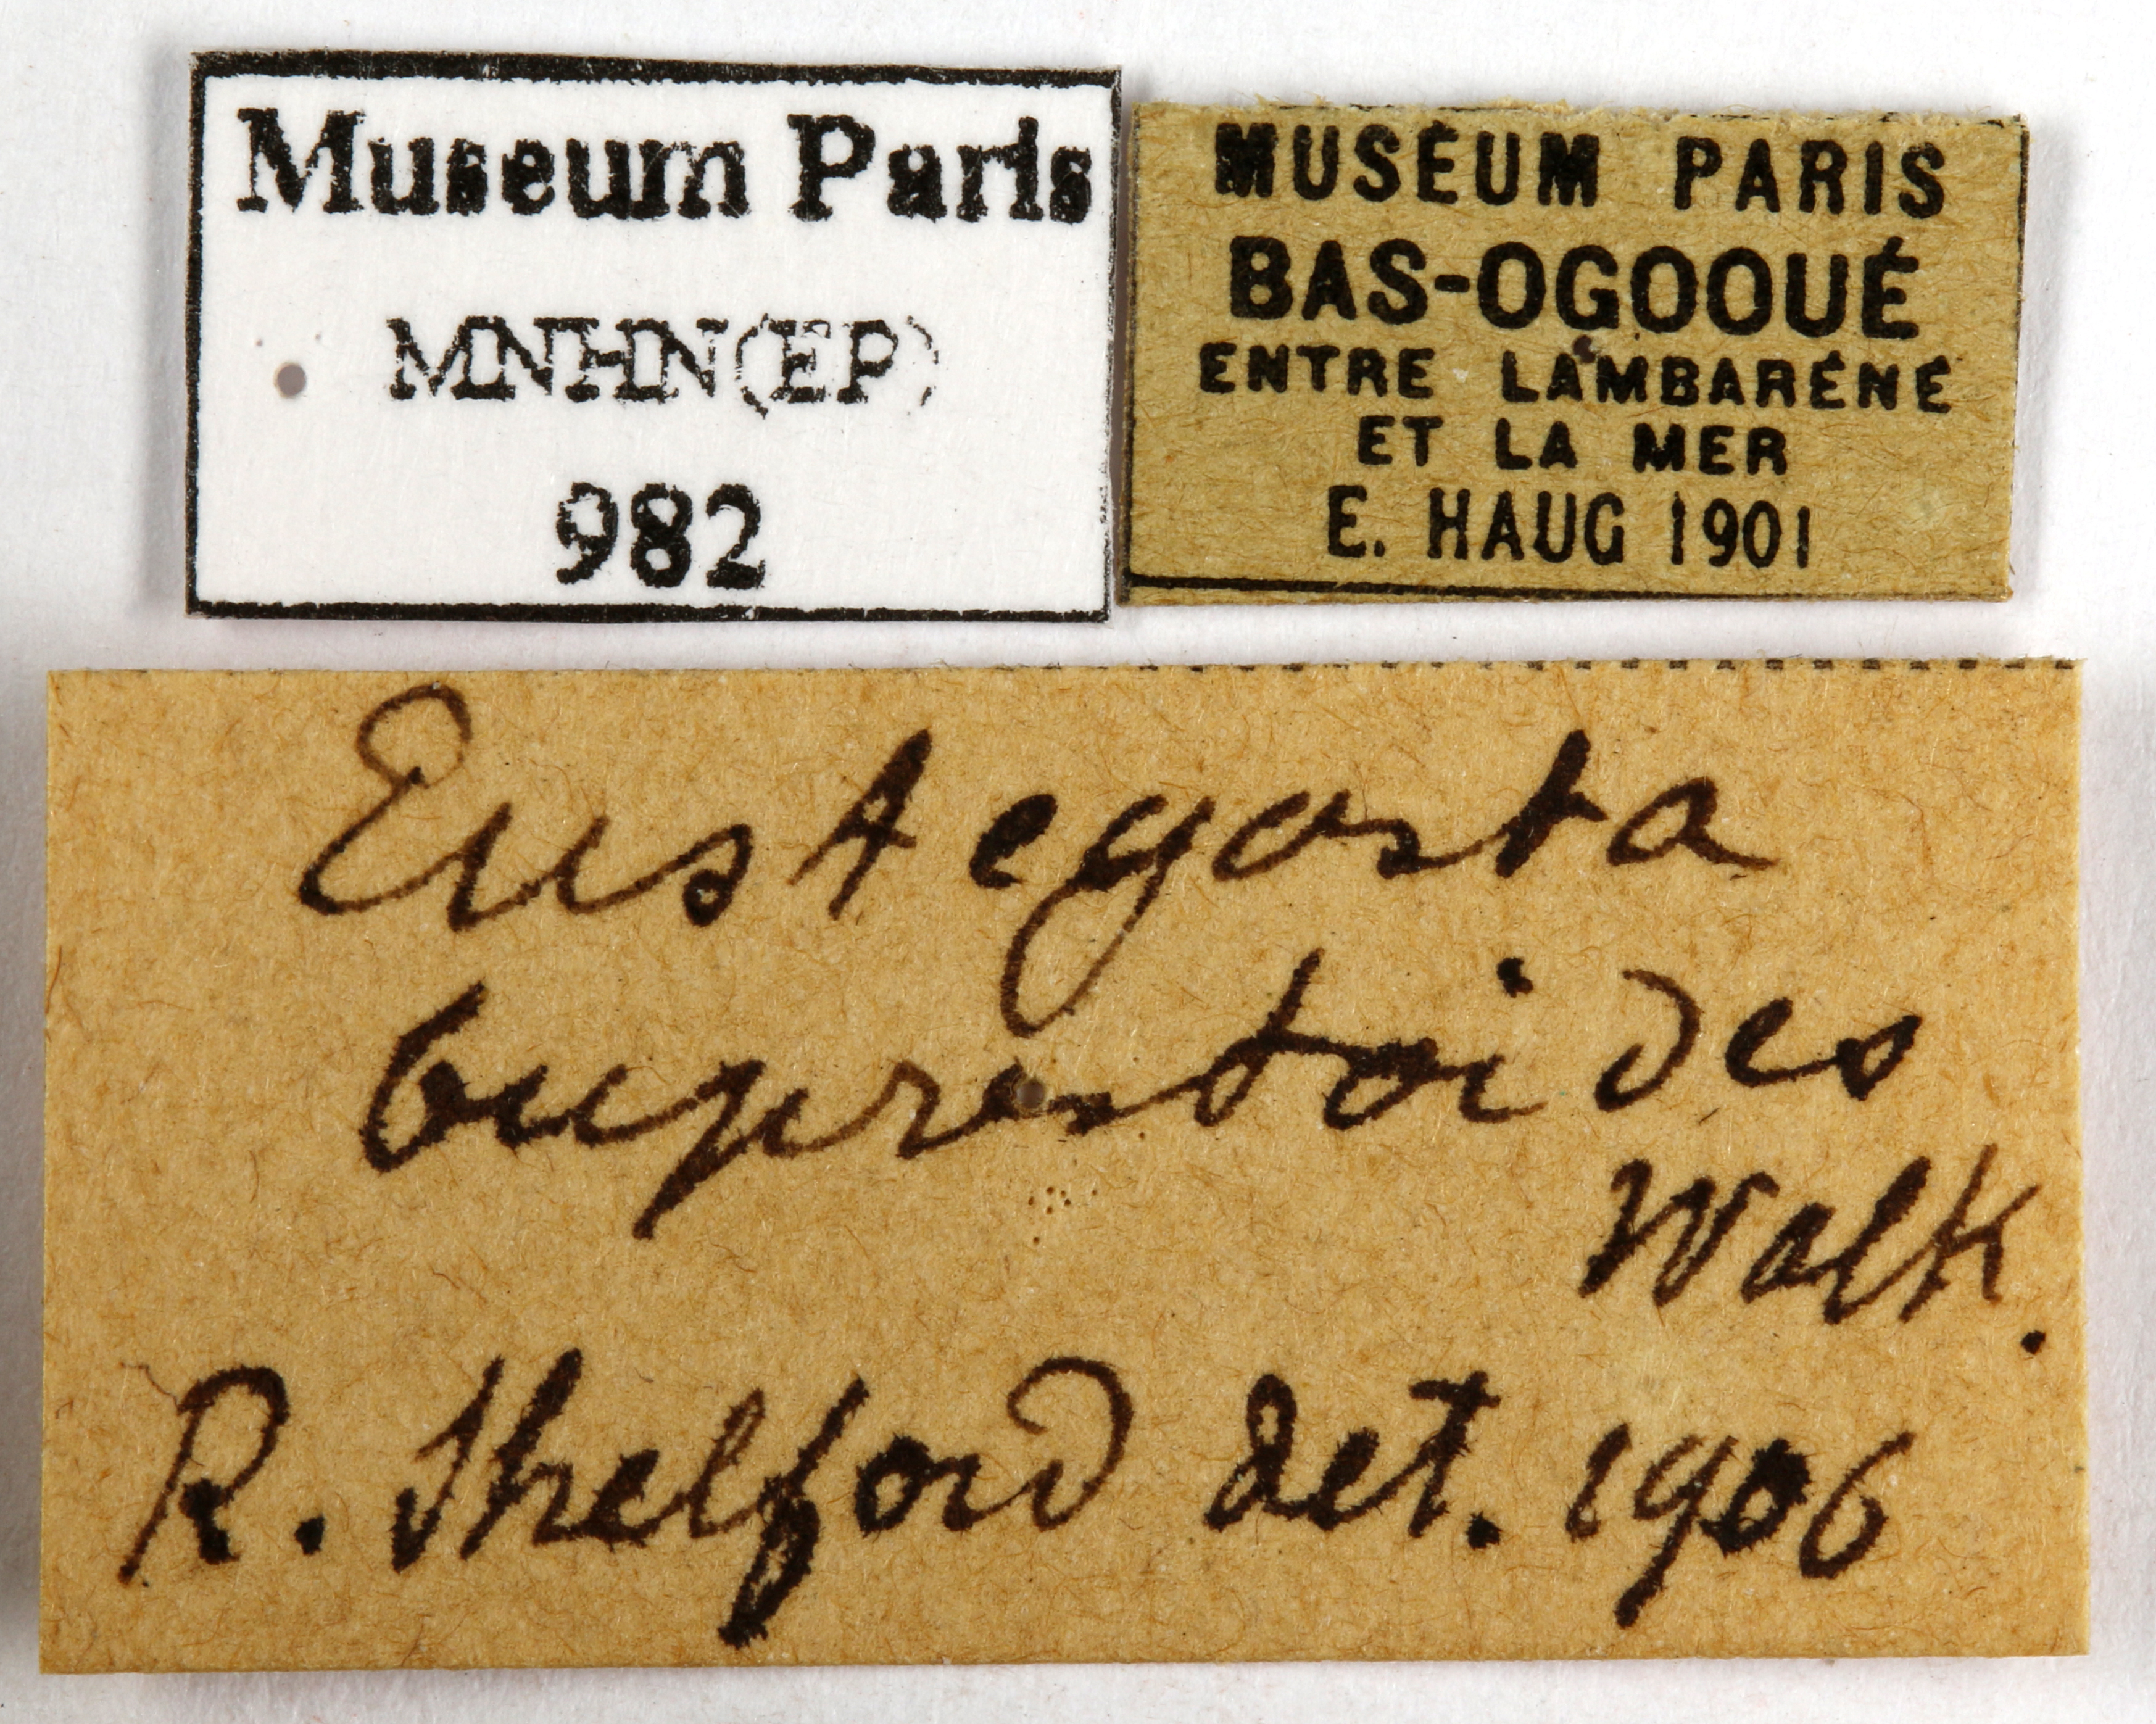 Museum Paris
MNHN(EP)
982
MUSÉUM PARIS
BAS-OGOOUÉ
ENTRE LAMBARÉNÉ
ET LA MER
E. HAUG 1901
Eustegasta
buprestoides
Walk.
R. Shelford det. 1906